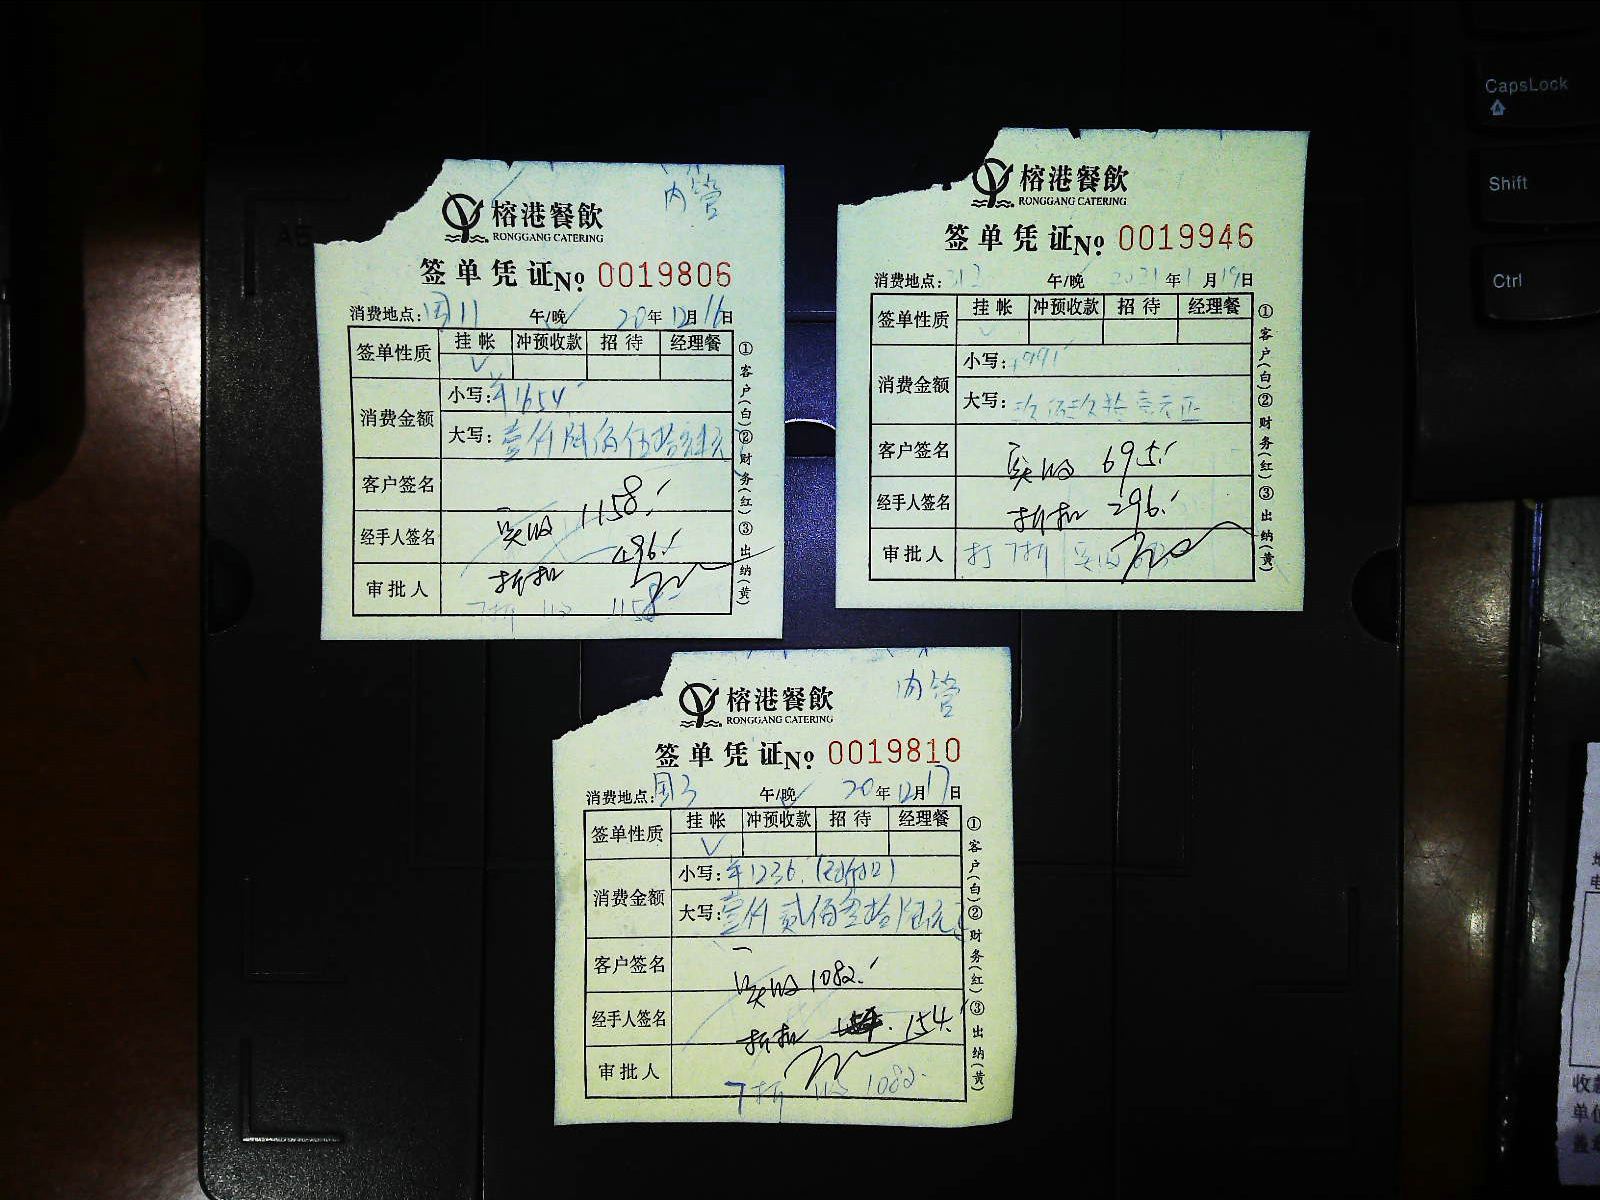 榕港餐飲
内管
RONGGANG CATERING
签单凭证 No 0019806
消费地点: 午/晚 20年12月16日
签单性质 挂帐 冲预收款 招待 经理餐
消费金额
小写: ¥1654
大写: 壹仟陆佰伍拾肆元
客户签名
实收 1158
经手人签名
496
审批人 折扣
7折 1158
①客户(白)②财务(红)③出纳(黄)
榕港餐飲
RONGGANG CATERING
签单凭证 No 0019946
消费地点: 312 午/晚 2021年1月19日
签单性质 挂帐 冲预收款 招待 经理餐
消费金额
小写: 991
大写: 玖佰玖拾壹元正
客户签名 实收 695
经手人签名 折扣 296
审批人 打7折 实收
①客户(白)②财务(红)③出纳(黄)
榕港餐飲
内管
RONGGANG CATERING
签单凭证 No 0019810
消费地点: 午/晚 20年12月17日
签单性质 挂帐 冲预收款 招待 经理餐
消费金额
小写: ¥1236
大写: 壹仟贰佰叁拾陆元
客户签名
实收 1082
经手人签名 折扣 154
审批人
7折 1082
①客户(白)②财务(红)③出纳(黄)
CapsLock
Shift
Ctrl
A5